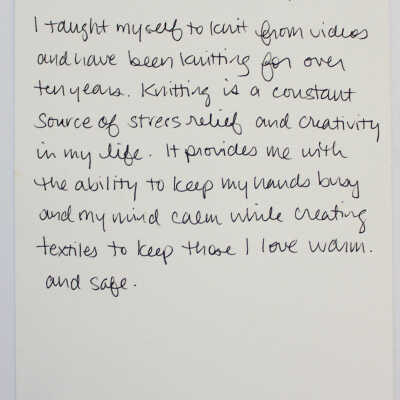 I taught myself to knit from videos
and have been knitting for over
ten years. Knitting is a constant
source of stress relief and creativity
in my life. It provides me with
the ability to keep my hands busy
and my mind calm while creating
textiles to keep those I love warm.
and safe.